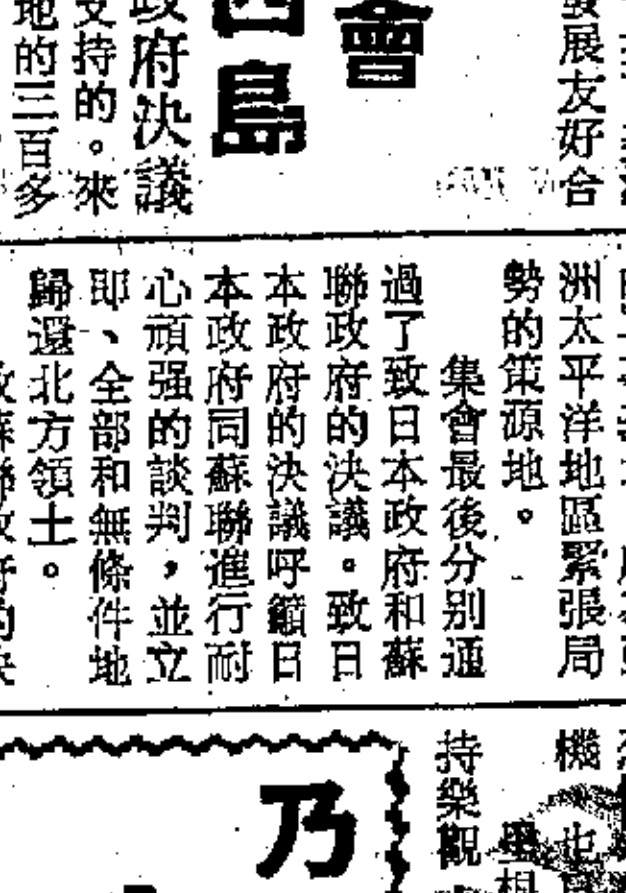 發展友好合
會
四島
政府決議
支持的。來
地的三百多
洲太平洋地區緊張局
勢的策源地。
集會最後分別通
過了致日本政府和蘇
聯政府的決議。致日
本政府的決議呼籲日
本政府同蘇聯進行耐
心頑强的談判，並立
即、全部和無條件地
歸還北方領土。
機也
持樂觀
乃